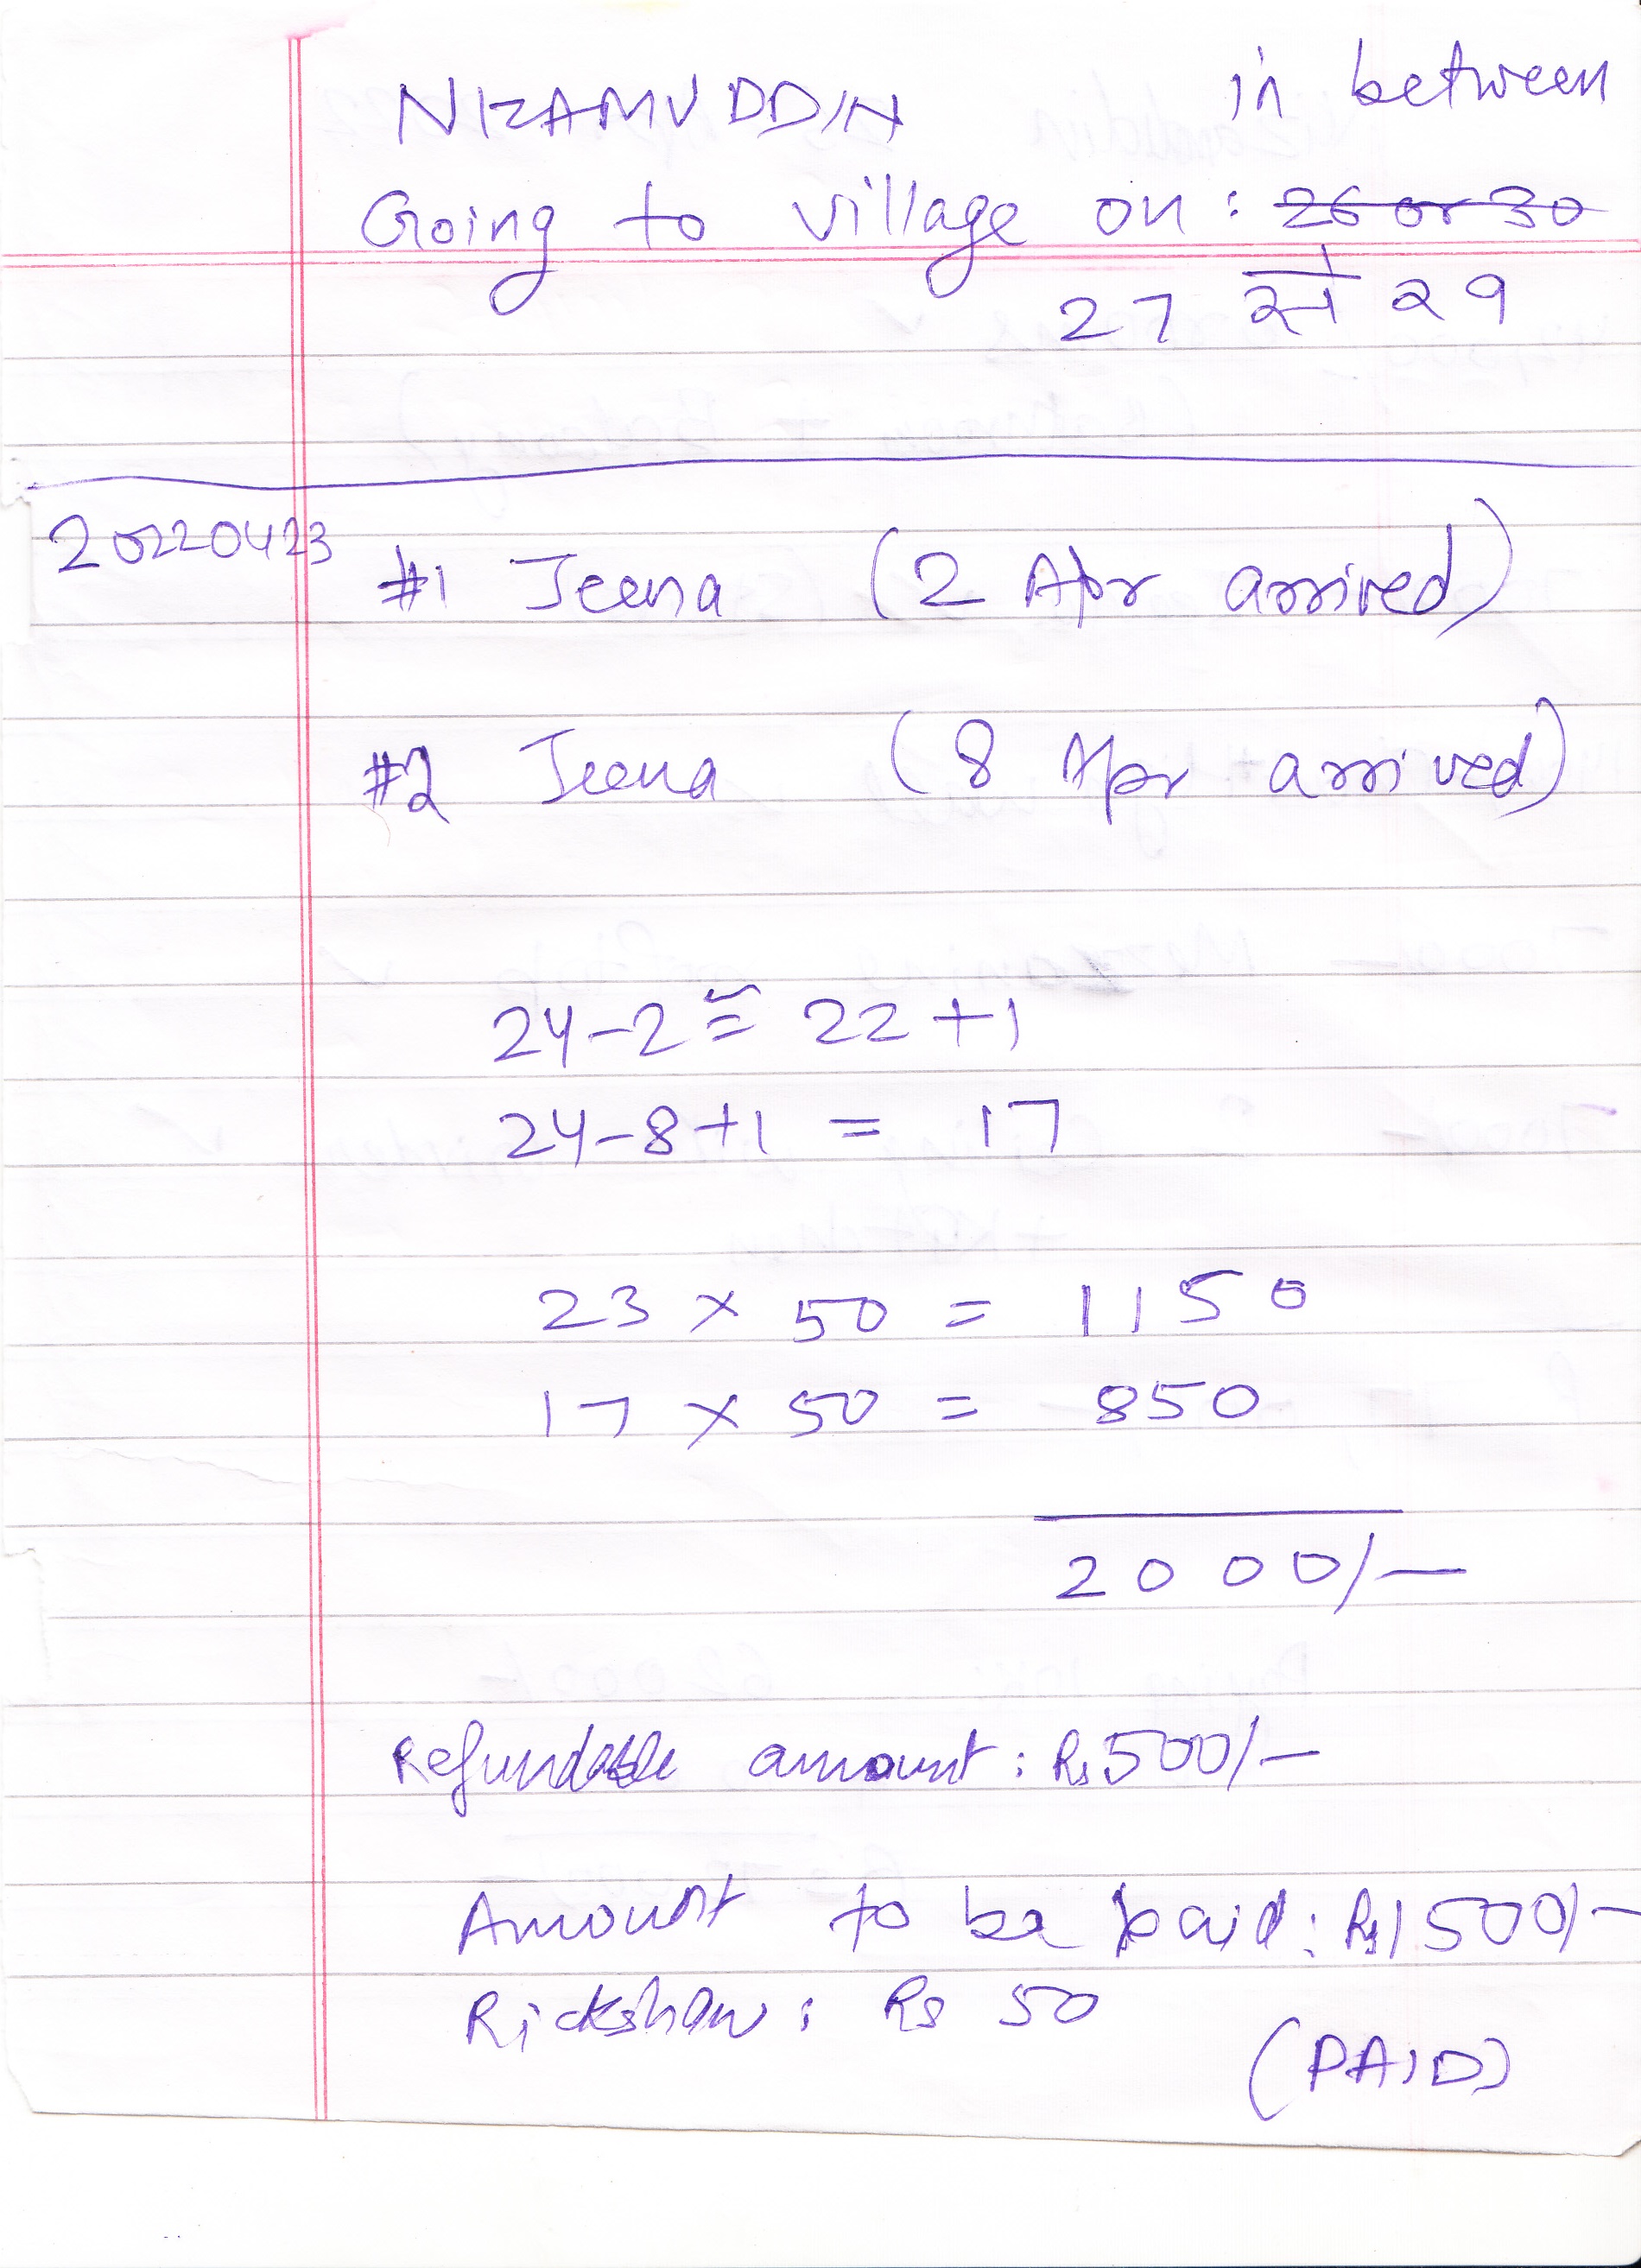 NIZAMUDDIN in between
Going to village on : 26 or 30
27 से 29
20220423
#1 Jeena (2 Apr arrived)
#2 Jeena (8 Apr arrived)
24-2 = 22 +1
24-8+1 = 17
23 x 50 = 1150
17 x 50 = 850
2000/-
Refundable amount : Rs 500/-
Amount to be paid : Rs 1500/-
Rickshaw : Rs 50
(PAID)